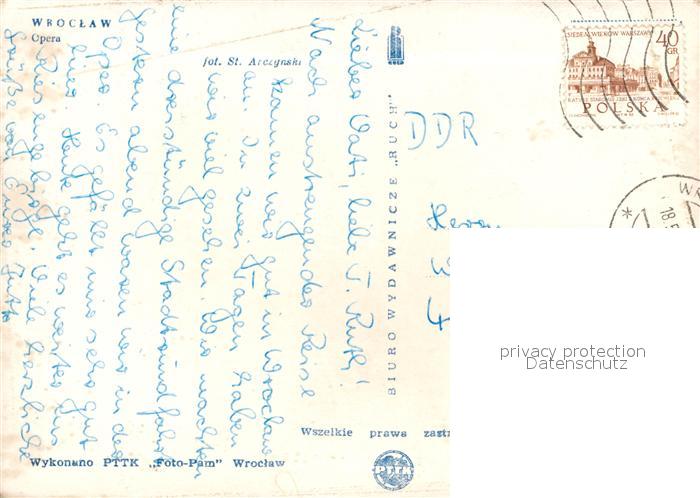 WROCŁAW
Opera
fot. St. Arczyński
SIEDEM WIEKÓW WARSZAWY
40
GR
POLSKA
DDR
BIURO WYDAWNICZE „RUCH”
Lieber Vati, liebe T. Ruth!
Nach anstrengender Reise
kamen wir gut in Wrocław
an. In zwei Tagen haben
wir viel gesehen. Wir machten
eine dreistündige Stadtrundfahrt
gestern abend waren wir in der
Oper. Es gefällt uns sehr gut
hier. Heute geht es weiter ins
Riesengebirge. Viele herzliche
Grüße von Eurer Jutta
Herrn
WR
18.
privacy protection
Datenschutz
Wszelkie prawa zastr
Wykonano PTTK „Foto-Pam” Wrocław
PTTK